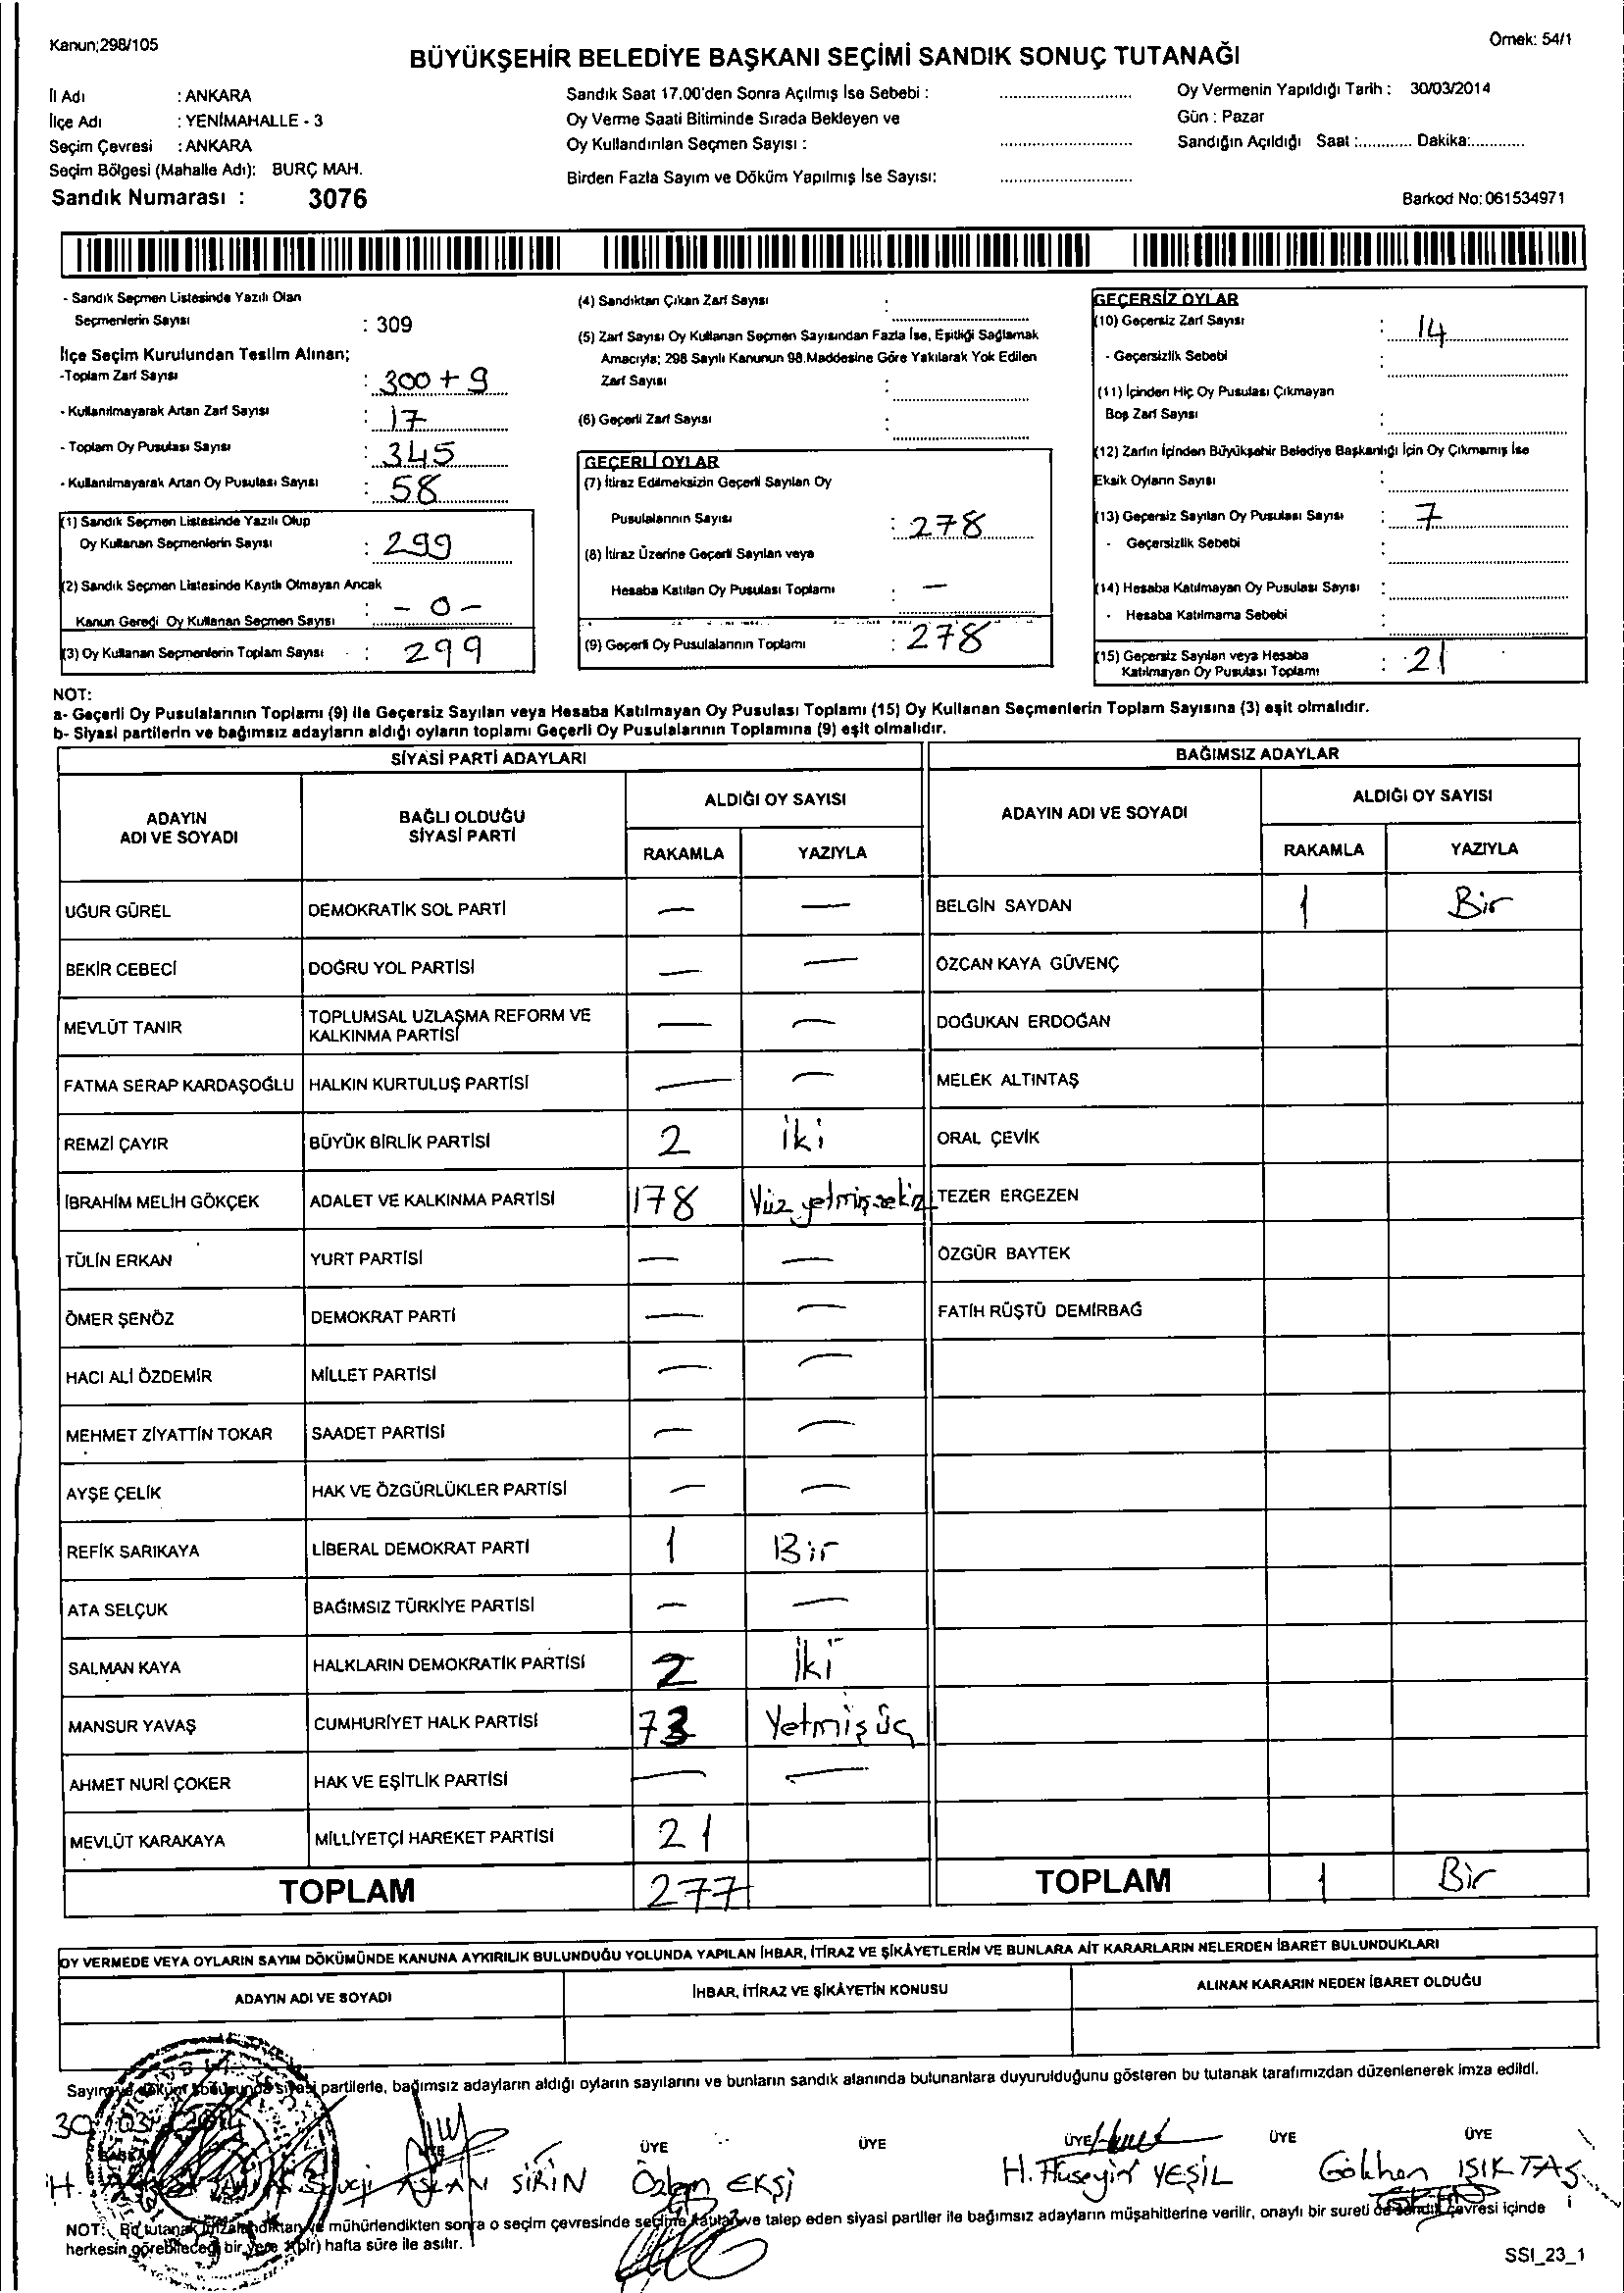 Kanun;298/105
Örnek: 54/1
BÜYÜKŞEHİR BELEDİYE BAŞKANI SEÇİMİ SANDIK SONUÇ TUTANAĞI
İl Adı : ANKARA
İlçe Adı : YENİMAHALLE - 3
Seçim Çevresi : ANKARA
Seçim Bölgesi (Mahalle Adı): BURÇ MAH.
Sandık Numarası : 3076
Sandık Saat 17.00'den Sonra Açılmış İse Sebebi :
Oy Verme Saati Bitiminde Sırada Bekleyen ve
Oy Kullandırılan Seçmen Sayısı :
Birden Fazla Sayım ve Döküm Yapılmış İse Sayısı:
Oy Vermenin Yapıldığı Tarih : 30/03/2014
Gün : Pazar
Sandığın Açıldığı Saat :............ Dakika:............
Barkod No: 061534971
- Sandık Seçmen Listesinde Yazılı Olan
Seçmenlerin Sayısı : 309
İlçe Seçim Kurulundan Teslim Alınan;
-Toplam Zarf Sayısı : 300 + 9
- Kullanılmayarak Artan Zarf Sayısı : 17
- Toplam Oy Pusulası Sayısı : 345
- Kullanılmayarak Artan Oy Pusulası Sayısı : 58
(1) Sandık Seçmen Listesinde Yazılı Olup
Oy Kullanan Seçmenlerin Sayısı : 299
(2) Sandık Seçmen Listesinde Kayıtlı Olmayan Ancak
Kanun Gereği Oy Kullanan Seçmen Sayısı : - 0 -
(3) Oy Kullanan Seçmenlerin Toplam Sayısı : 299
(4) Sandıktan Çıkan Zarf Sayısı :
(5) Zarf Sayısı Oy Kullanan Seçmen Sayısından Fazla İse, Eşitliği Sağlamak
Amacıyla; 298 Sayılı Kanunun 98.Maddesine Göre Yakılarak Yok Edilen
Zarf Sayısı :
(6) Geçerli Zarf Sayısı :
GEÇERLİ OYLAR
(7) İtiraz Edilmeksizin Geçerli Sayılan Oy
Pusulalarının Sayısı : 278
(8) İtiraz Üzerine Geçerli Sayılan veya
Hesaba Katılan Oy Pusulası Toplamı : —
(9) Geçerli Oy Pusulalarının Toplamı : 278
GEÇERSİZ OYLAR
(10) Geçersiz Zarf Sayısı : 14
- Geçersizlik Sebebi :
(11) İçinden Hiç Oy Pusulası Çıkmayan
Boş Zarf Sayısı :
(12) Zarfın İçinden Büyükşehir Belediye Başkanlığı İçin Oy Çıkmamış İse
Eksik Oyların Sayısı :
(13) Geçersiz Sayılan Oy Pusulası Sayısı : 7
- Geçersizlik Sebebi :
(14) Hesaba Katılmayan Oy Pusulası Sayısı :
- Hesaba Katılmama Sebebi :
(15) Geçersiz Sayılan veya Hesaba
Katılmayan Oy Pusulası Toplamı : 21
NOT:
a- Geçerli Oy Pusulalarının Toplamı (9) ile Geçersiz Sayılan veya Hesaba Katılmayan Oy Pusulası Toplamı (15) Oy Kullanan Seçmenlerin Toplam Sayısına (3) eşit olmalıdır.
b- Siyasi partilerin ve bağımsız adayların aldığı oyların toplamı Geçerli Oy Pusulalarının Toplamına (9) eşit olmalıdır.
SİYASİ PARTİ ADAYLARI
ADAYIN ADI VE SOYADI
BAĞLI OLDUĞU SİYASİ PARTİ
ALDIĞI OY SAYISI
RAKAMLA YAZIYLA
UĞUR GÜREL DEMOKRATİK SOL PARTİ — —
BEKİR CEBECİ DOĞRU YOL PARTİSİ — —
MEVLÜT TANIR TOPLUMSAL UZLAŞMA REFORM VE KALKINMA PARTİSİ — —
FATMA SERAP KARDAŞOĞLU HALKIN KURTULUŞ PARTİSİ — —
REMZİ ÇAYIR BÜYÜK BİRLİK PARTİSİ 2 iki
İBRAHİM MELİH GÖKÇEK ADALET VE KALKINMA PARTİSİ 178 Yüz yetmiş sekiz
TÜLİN ERKAN YURT PARTİSİ — —
ÖMER ŞENÖZ DEMOKRAT PARTİ — —
HACI ALİ ÖZDEMİR MİLLET PARTİSİ — —
MEHMET ZİYATTİN TOKAR SAADET PARTİSİ — —
AYŞE ÇELİK HAK VE ÖZGÜRLÜKLER PARTİSİ — —
REFİK SARIKAYA LİBERAL DEMOKRAT PARTİ 1 Bir
ATA SELÇUK BAĞIMSIZ TÜRKİYE PARTİSİ — —
SALMAN KAYA HALKLARIN DEMOKRATİK PARTİSİ 2 İki
MANSUR YAVAŞ CUMHURİYET HALK PARTİSİ 73 Yetmiş üç
AHMET NURİ ÇOKER HAK VE EŞİTLİK PARTİSİ — —
MEVLÜT KARAKAYA MİLLİYETÇİ HAREKET PARTİSİ 21
TOPLAM 277
BAĞIMSIZ ADAYLAR
ADAYIN ADI VE SOYADI
ALDIĞI OY SAYISI
RAKAMLA YAZIYLA
BELGİN SAYDAN 1 Bir
ÖZCAN KAYA GÜVENÇ
DOĞUKAN ERDOĞAN
MELEK ALTINTAŞ
ORAL ÇEVİK
TEZER ERGEZEN
ÖZGÜR BAYTEK
FATİH RÜŞTÜ DEMİRBAĞ
TOPLAM 1 Bir
OY VERMEDE VEYA OYLARIN SAYIM DÖKÜMÜNDE KANUNA AYKIRILIK BULUNDUĞU YOLUNDA YAPILAN İHBAR, İTİRAZ VE ŞİKÂYETLERİN VE BUNLARA AİT KARARLARIN NELERDEN İBARET BULUNDUKLARI
ADAYIN ADI VE SOYADI
İHBAR, İTİRAZ VE ŞİKÂYETİN KONUSU
ALINAN KARARIN NEDEN İBARET OLDUĞU
partilerle, bağımsız adayların aldığı oyların sayılarını ve bunların sandık alanında bulunanlara duyurulduğunu gösteren bu tutanak tarafımızdan düzenlenerek imza edildi.
ÜYE ÜYE ÜYE ÜYE ÜYE
H. ASLAN SİRİN Özlem EKŞİ H. Hüseyin YEŞİL Gökhan IŞIKTAŞ
NOT: Bu tutanak mühürlendikten sonra o seçim çevresinde seçime katılan ve talep eden siyasi partiler ile bağımsız adayların müşahitlerine verilir, onaylı bir sureti de sandık çevresi içinde
herkesin görebileceği bir yere (bir) hafta süre ile asılır.
SSI_23_1